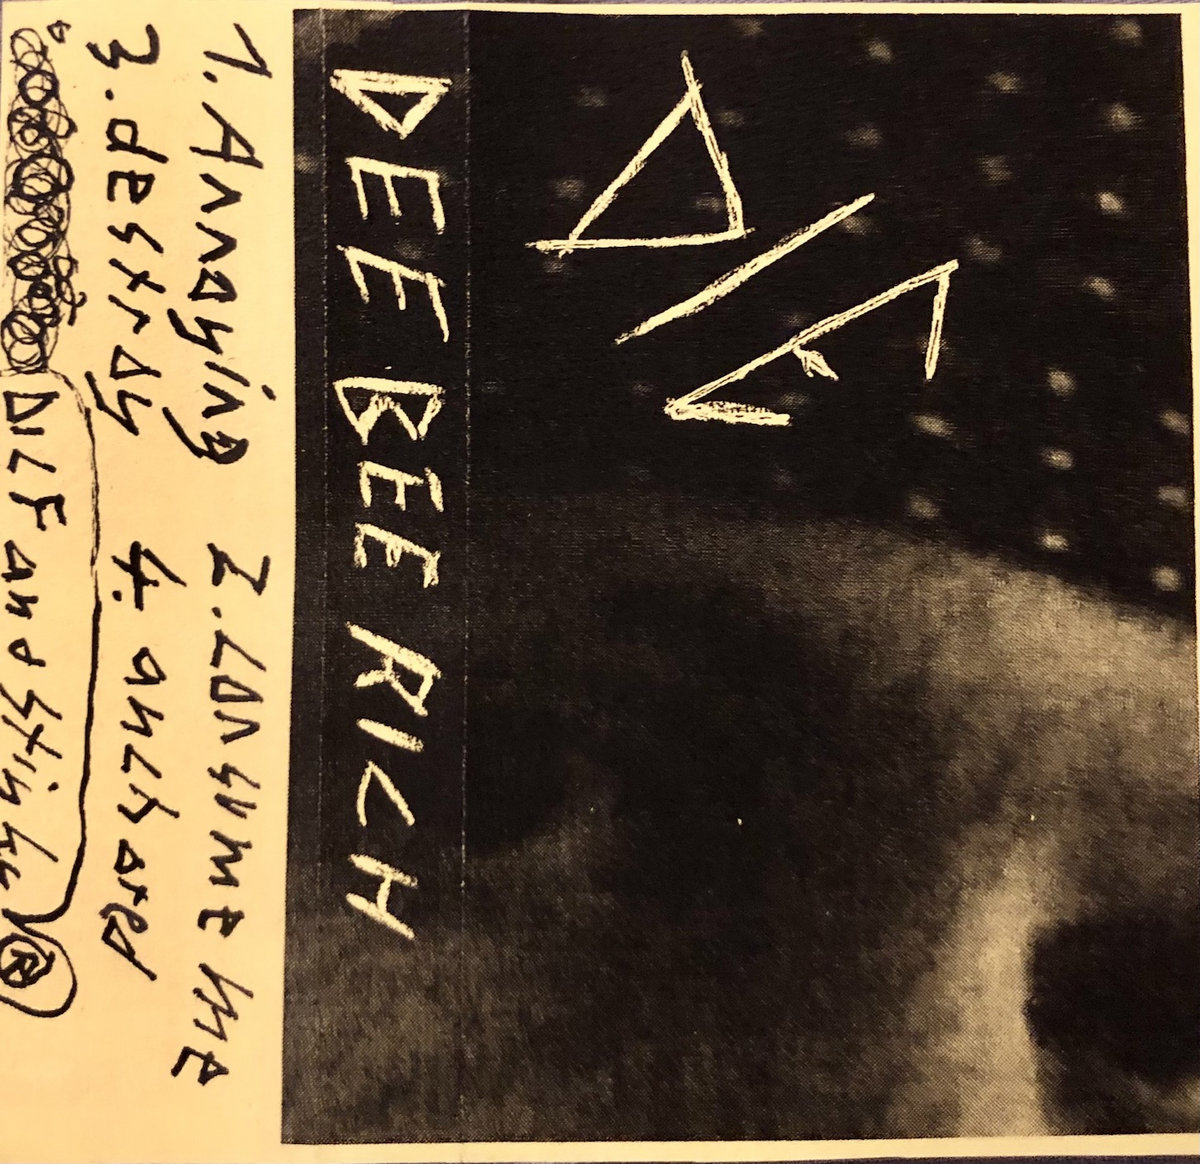 DIE
DEE BEE RICH
1. Annoying 2. Consume me
3. destroy 4. anchored
DILF and ®